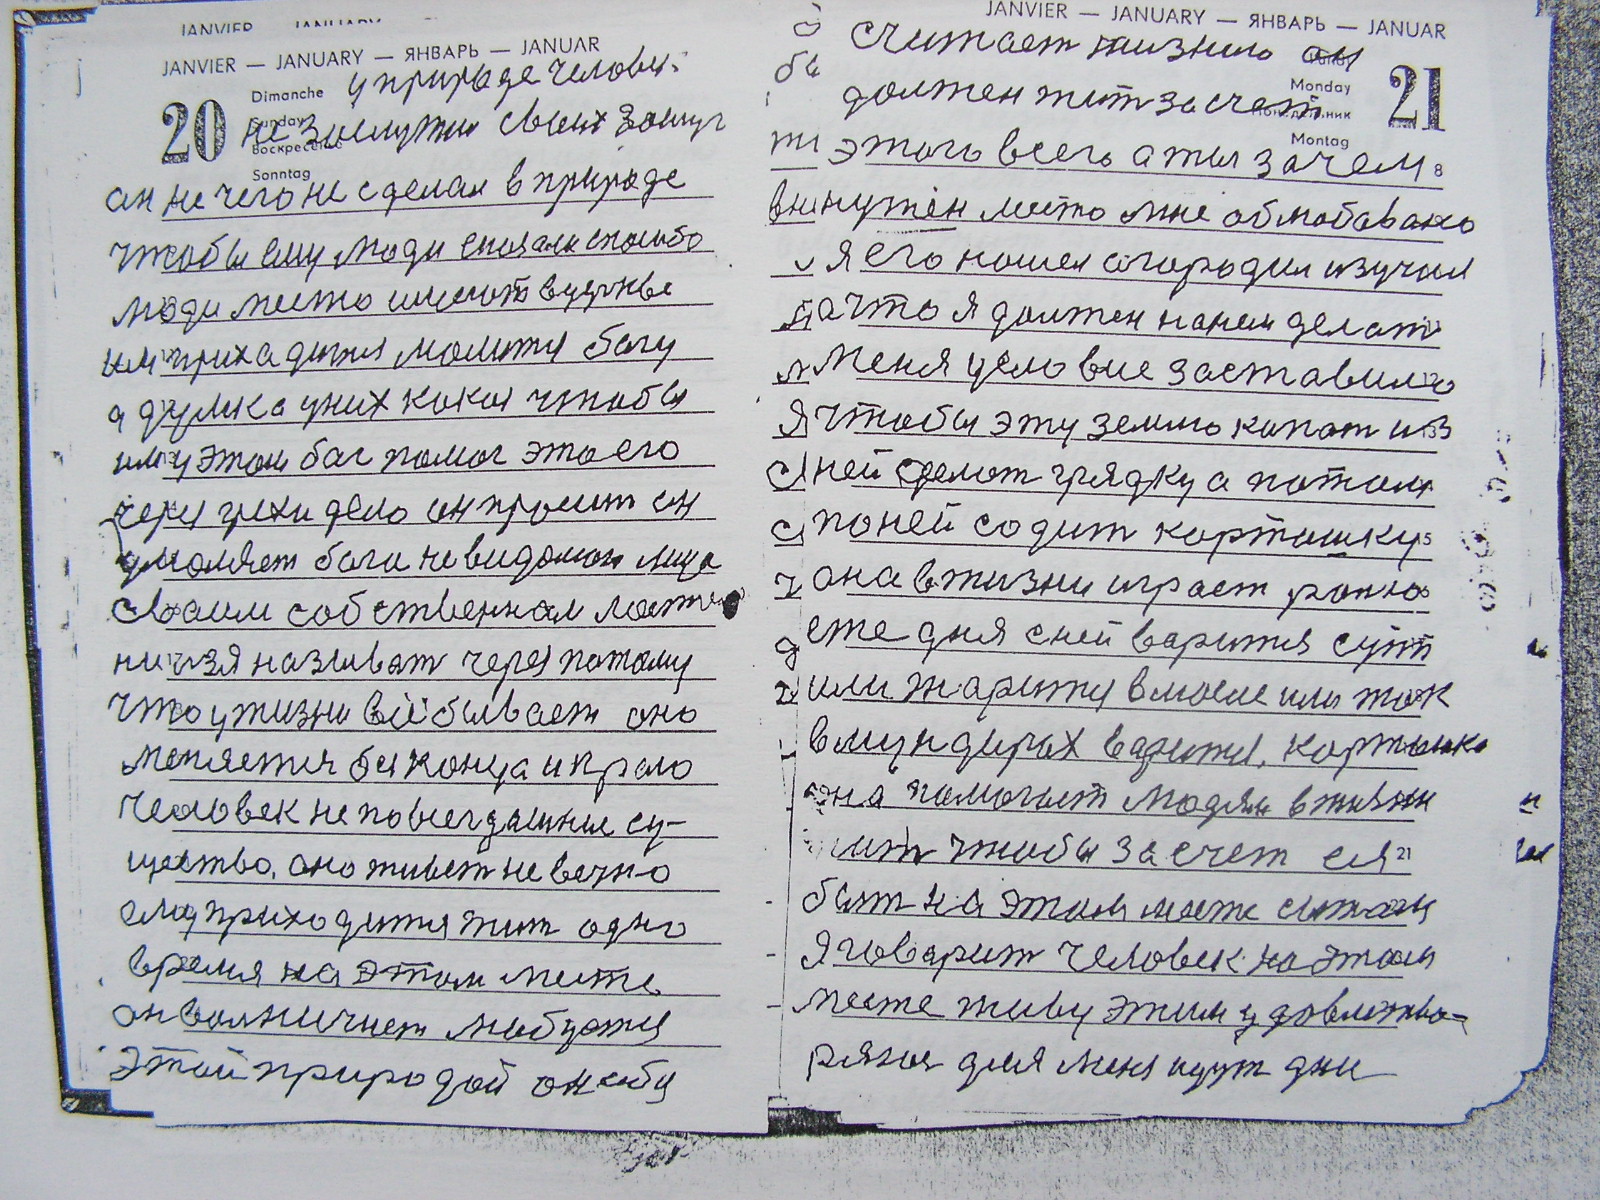 JANVIER — JANUARY
JANVIER — JANUARY — ЯНВАРЬ — JANUAR
20
Dimanche
Sunday
Воскресенье
Sonntag
у природе человек
не заслужил своих заслуг
он не чего не сделал в природе
чтобы ему люди сказали спасибо
люди место имеют
им приходится молится богу
а думка у них какая чтобы
им у этом бог помог это его
через грехи дело он просит он
умоляет бога не видомого лица
своим собственном
низя называт через потому
что у жизни всё бывает оно
меняется бес конца и краю
человек не повсегдашние су-
щество. оно живет не вечно
ему приходится жит одно
время на этом месте
он волничиет любуется
этой природой он себу
JANVIER — JANUARY — ЯНВАРЬ — JANUAR
21
Monday
Понедельник
Montag
считает жизнию он
должен жит за счет
этого всего а ты зачем 8
нужен место мне облюбовано
я его нашел огородил изучил
а что я должен на нем делать
меня условие заставило
чтобы эту землю копат и з
ней делат грядку а потом
по ней содит картошку
она в жизни играет ролю
еже дня с ней варится суп
или жарится в масле или так
в мундирах варится. картошка
она помогает людям в жизни
жит чтобы за счет ея 21
быт на этом месте сытым
я говорит человек на этом
месте живу этим удовлетво-
ряюся для меня идут дни